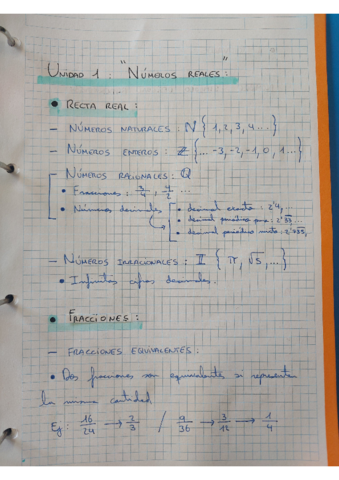 UNIDAD 1 : "NÚMEROS REALES":
• RECTA REAL :
– NÚMEROS NATURALES : ℕ { 1, 2, 3, 4 ... }
– NÚMEROS ENTEROS : ℤ { ... -3, -2, -1, 0, 1 ... }
NÚMEROS RACIONALES : ℚ
• Fracciones : /4 , 4/2 ...
• Números decimales → • decimal exacto : 2'4,
• decimal periódico puro : 2'
• decimal periódico mixto :
– NÚMEROS IRRACIONALES : 𝕀 { π, √5, ... }
• Infinitas cifras decimales.
• FRACCIONES :
– FRACCIONES EQUIVALENTES.
• Dos fracciones son equivalentes si representan
la misma cantidad
Ej : 16/24 → 2/3 / 9/36 → 3/12 → 1/4